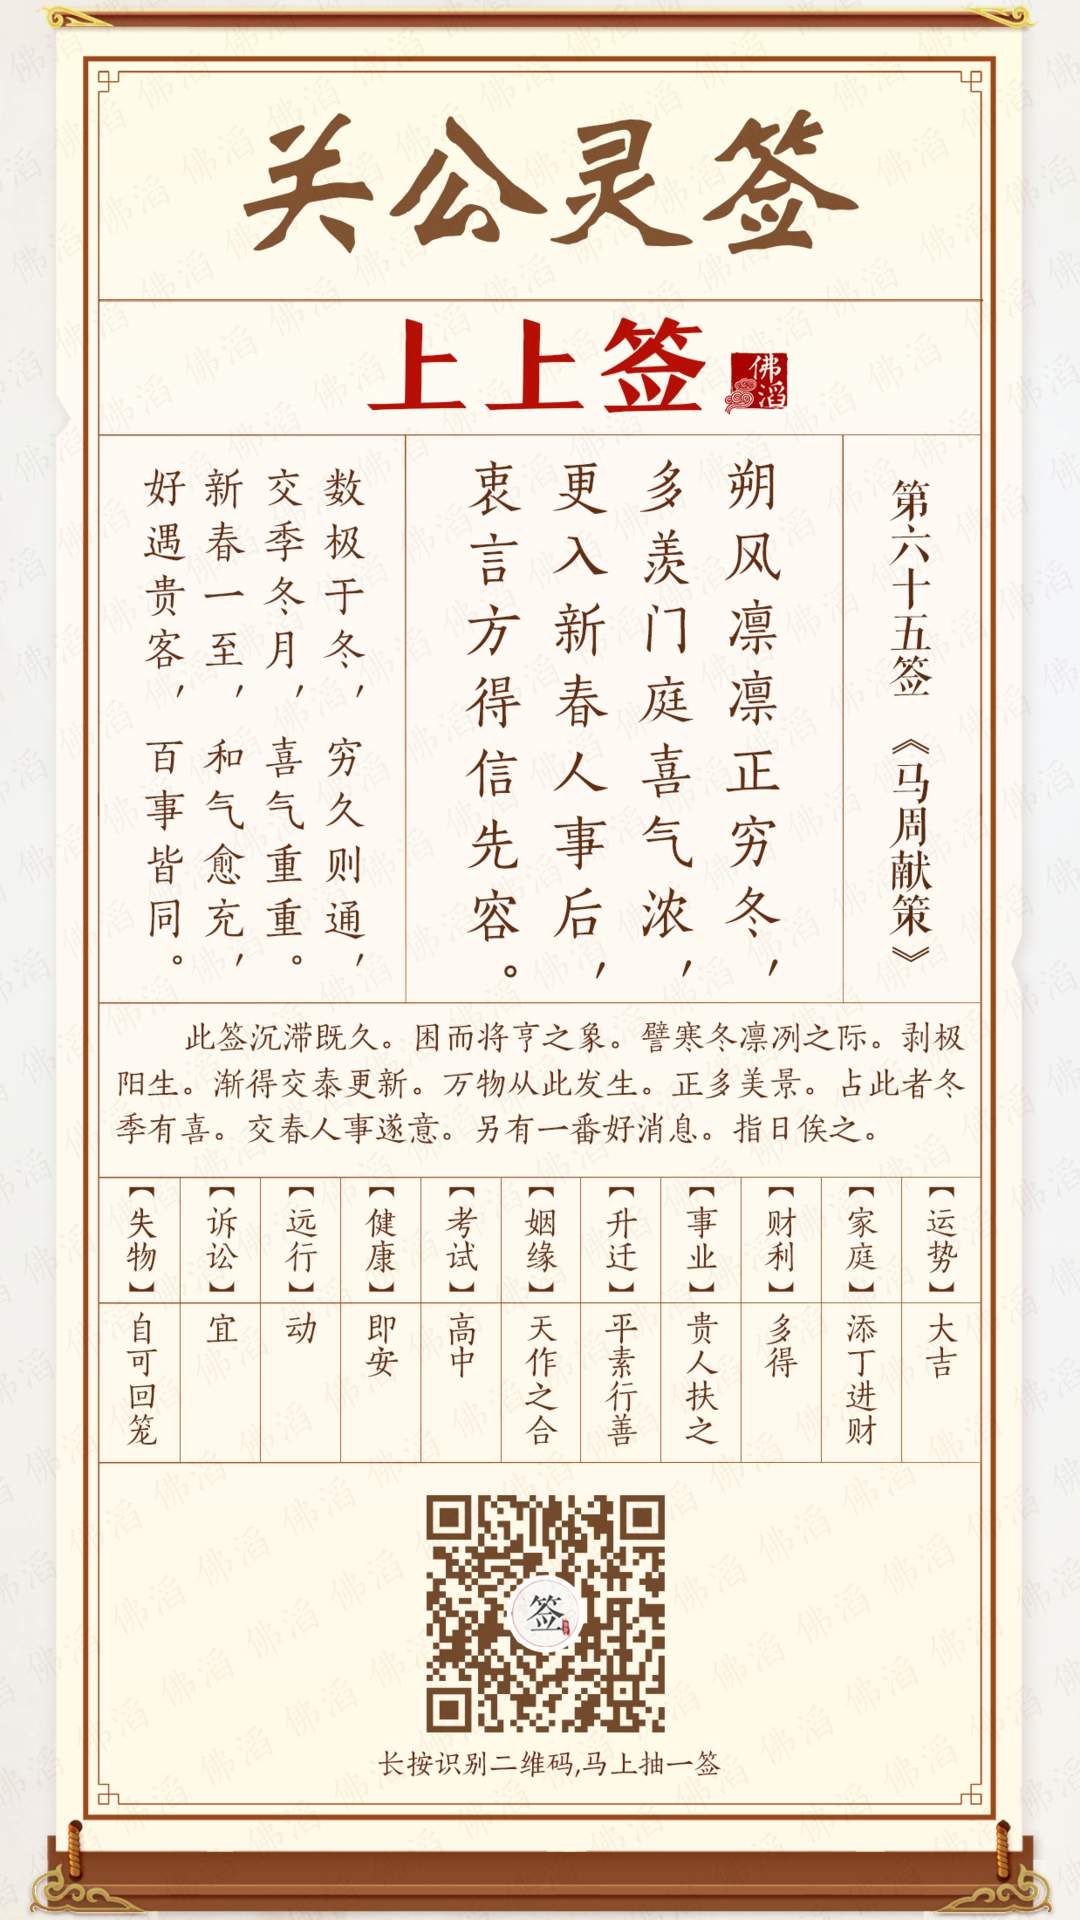 关公灵签
上上签
佛滔
第六十五签 《马周献策》
朔风凛凛正穷冬，
多羡门庭喜气浓，
更入新春人事后，
衷言方得信先容。
数极于冬，穷久则通，
交季冬月，喜气重重。
新春一至，和气愈充，
好遇贵客，百事皆同。
此签沉滞既久。困而将亨之象。譬寒冬凛冽之际。剥极
阳生。渐得交泰更新。万物从此发生。正多美景。占此者冬
季有喜。交春人事遂意。另有一番好消息。指日俟之。
【运势】大吉
【家庭】添丁进财
【财利】多得
【事业】贵人扶之
【升迁】平素行善
【姻缘】天作之合
【考试】高中
【健康】即安
【远行】动
【诉讼】宜
【失物】自可回笼
签
长按识别二维码,马上抽一签